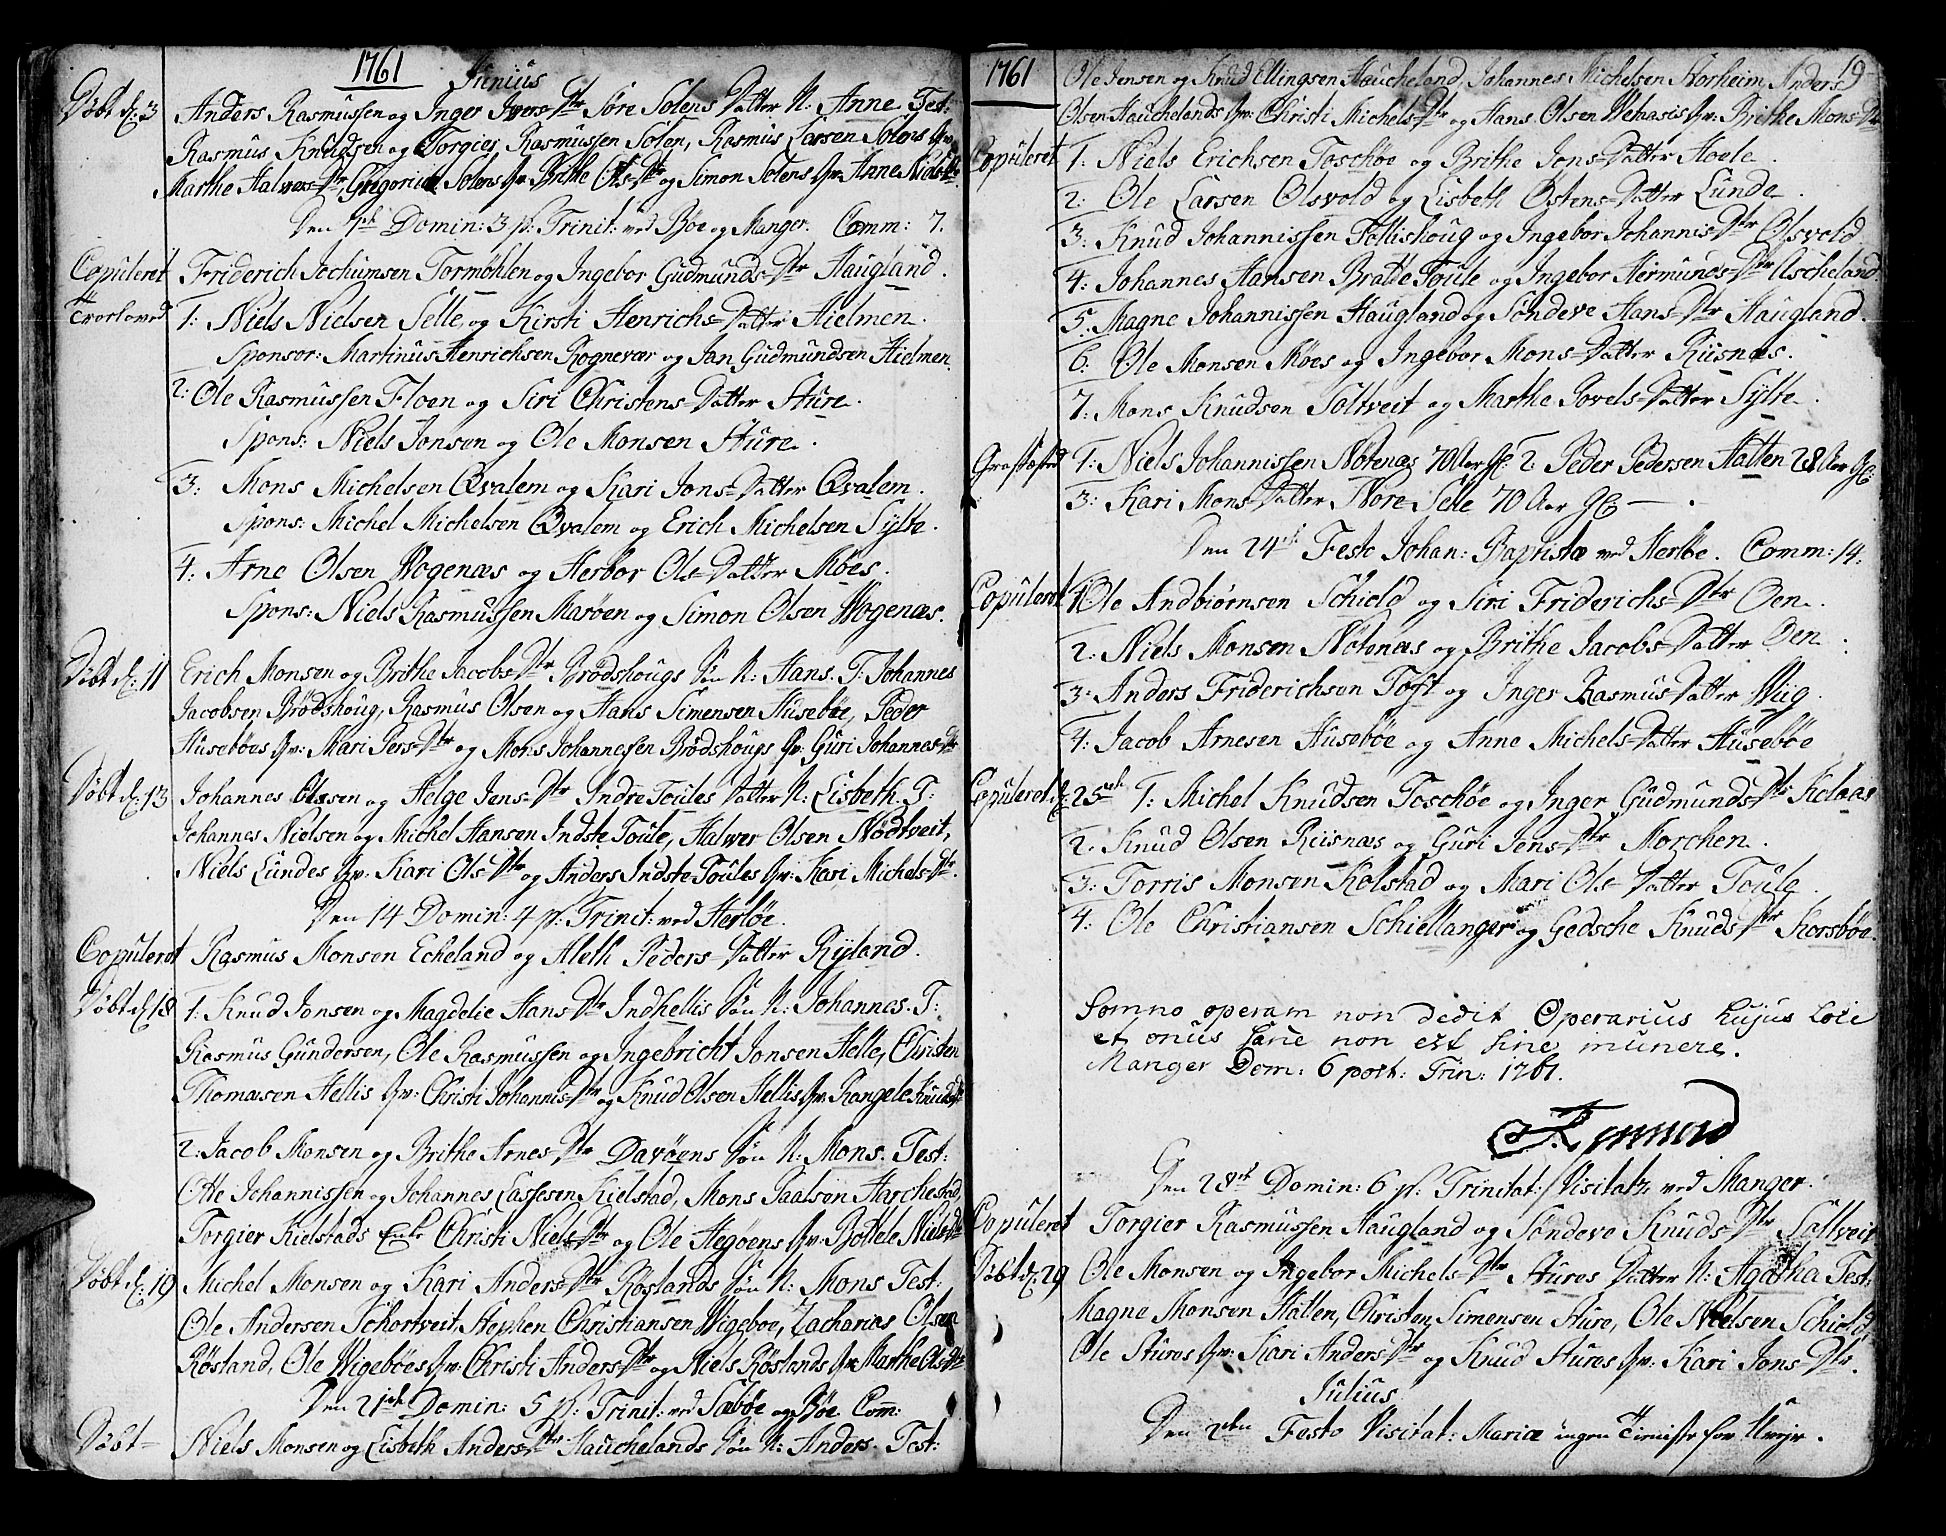 1761 Junius
Døbt d: 3 Anders Rasmussen og Inger Ivers Dtr Søre Solens Datter N: Anne. Test:
Rasmus Knudsen og Torgier Rasmussen Solen, Rasmus Larsen Solens Qv:
Marthe Halvors Dtr, Gregorius Solens Qv: Brithe Ols Dtr og Simon Solens Qv: Anne Niels Dtr
Den 7de Domin: 3 p. Trinit: ved Bøe og Manger. Comm: 7.
Copuleret Friderich Jochumsen Tormøhlen og Ingebor Gudmunds Dtr Haugland.
Trorloved 1: Niels Nielsen Selle og Kirsti Henrichs Datter Hielmen.
Sponsor: Martinus Henrichsen Rognevær og Jan Gudmundsen Hielmen.
2: Ole Rasmussen Floen og Siri Christens Datter Sture.
Spons: Niels Jonsen og Ole Monsen Sture.
3: Mons Michelsen Qvalem og Kari Jons Datter Qvalem.
Spons: Michel Michelsen Qvalem og Erich Michelsen Sylte.
4: Arne Olsen Wogenæs og Herbor Ols Datter Møes.
Spons: Niels Rasmussen Marøen og Simon Olsen Wogenæs.
Døbt d: 11 Erich Monsen og Brithe Jacobs Dtr Brødshougs Søn N: Hans. T: Johannes
Jacobsen Brødshoug, Rasmus Olsen og Hans Simensen Husebøe, Peder
Husebøes Qv: Mari Pers Dtr og Mons Johannessen Brødshougs Qv: Guri Johannes Dtr
Døbt d: 13 Johannes Olssen og Helge Jens Dtr Indre Toules Datter N: Lisbeth. T:
Johannes Nielsen og Michel Hansen Indste Toule, Halwer Olsen Nødtveit,
Niels Lundes Qv: Kari Ols Dtr og Anders Indste Toules Qv: Kari Michels Dtr.
Den 14 Domin: 4 p. Trinit: ved Herløe.
Copuleret Rasmus Monsen Echeland og Aleth Peders Datter Ryland.
Døbt d: 18 1: Knud Jonsen og Magdelie Hans Dtr Indhellis Søn N: Johannes. T:
Rasmus Gundersen, Ole Rasmussen og Ingebricht Jonsen Helle, Christen
Thomæsen Hellis Qv: Christi Johannis Dtr og Knud Olsen Hellis Qv: Rangele Knuds Dtr
2: Jacob Monsen og Brithe Arnes Dtr Davøens Søn N: Mons. Test:
Otte Johannissen og Johannes Lassesen Kielstad, Mons Paalson Harchestad,
Torgier Kielstads Enke Christi Niels Dtr og Ole Hegøens Qv: Bottele Niels Dtr
Døbt d: 19 Michel Monsen og Kari Anders Dtr Røslands Søn N: Mons Test:
Ole Andersen Schortveit, Stephen Christiansen Wigebøe, Zacharias Olsen
Røsland, Ole Wigebøes Qv: Christi Anders Dtr og Niels Røslands Qv: Marthe Ols Dtr
Den 21de Domin: 5 p. Trinit: ved Sæbøe og Bøe. Com:
Døbt Niels Monsen og Lisbeth Anders Dtr Hauchelands Søn N: Anders. Test:
1761 19
Ole Jensen og Knud Ellingsen Haucheland, Johannes Michelsen Norheim Anders
Olsen Hauchelands Qv: Christi Michels Dtr og Hans Olsen Qv: Brithe Mons Dtr
Copuleret 1: Niels Erichsen Toschøe og Brithe Jons Datter Hoele.
2: Ole Larsen Olsvold og Lisbeth Østens Datter Lunde.
3: Knud Johannissen Tollishoug og Ingebor Johannis Dtr Olsvold
4: Johannes Hansen Bratte Toule og Ingebor Hermunds Dtr Ascheland
5: Magne Johannissen Haugland og Søndeve Hans Dtr Haugland.
6: Ole Monsen Møes og Ingebor Mons Datter Riisnæs.
7: Mons Knudsen Soltveit og Marthe Povels Datter Sylte.
Grafæsted 1: Niels Johannissen Notenæs 70 Aar 2: Peder Pedersen Hatten 28 Aar
3: Kari Mons Datter Nore Sele 70 Aar
Den 24de Festo Johan: Baptistæ ved Herløe. Comm: 14.
Copuleret 1 Ole Andbiørnsen Schield og Siri Friderichs Dtr Oen.
2: Niels Monsen Notenæs og Brithe Jacobs Datter Oen.
3: Anders Friderichsen Toft og Inger Rasmus Datter Wiig.
4: Jacob Arnesen Husebøe og Anne Michels Datter Husebøe
Copuleret d: 25de 1: Michel Knudsen Toschøe og Inger Gudmunds Dtr Kelaas
2: Knud Olsen Riisnæs og Guri Jens Dtr Morchen.
3: Torris Monsen Kolstad og Mari Ols Datter Toule.
4: Ole Christiansen Schiellanger og Gedsche Knuds Dtr Korsbøe.
Somno operam non dedit Operarius hujus loci
et onus sane non est sine munere.
Manger Dom: 6 post: Trin: 1761.
Den 28de Domin: 6 p. Trinitat: / Visitatz ved Manger.
Copuleret Torgier Rasmussen Haugland og Søndeve Knuds Dtr Saltveit
Døbt d: 29 Ole Monsen og Ingebor Michels Dtr Stures Datter N: Agatha Test:
Magne Monsen Hatten, Christen Simensen Sture, Ole Nielsen Schield
Ole Stures Qv: Kari Anders Dtr og Knud Stures Qv: Kari Jons Dtr.
Julius
Den 2den Festo Visitat: Mariæ ingen Tieniste for Uvejr.